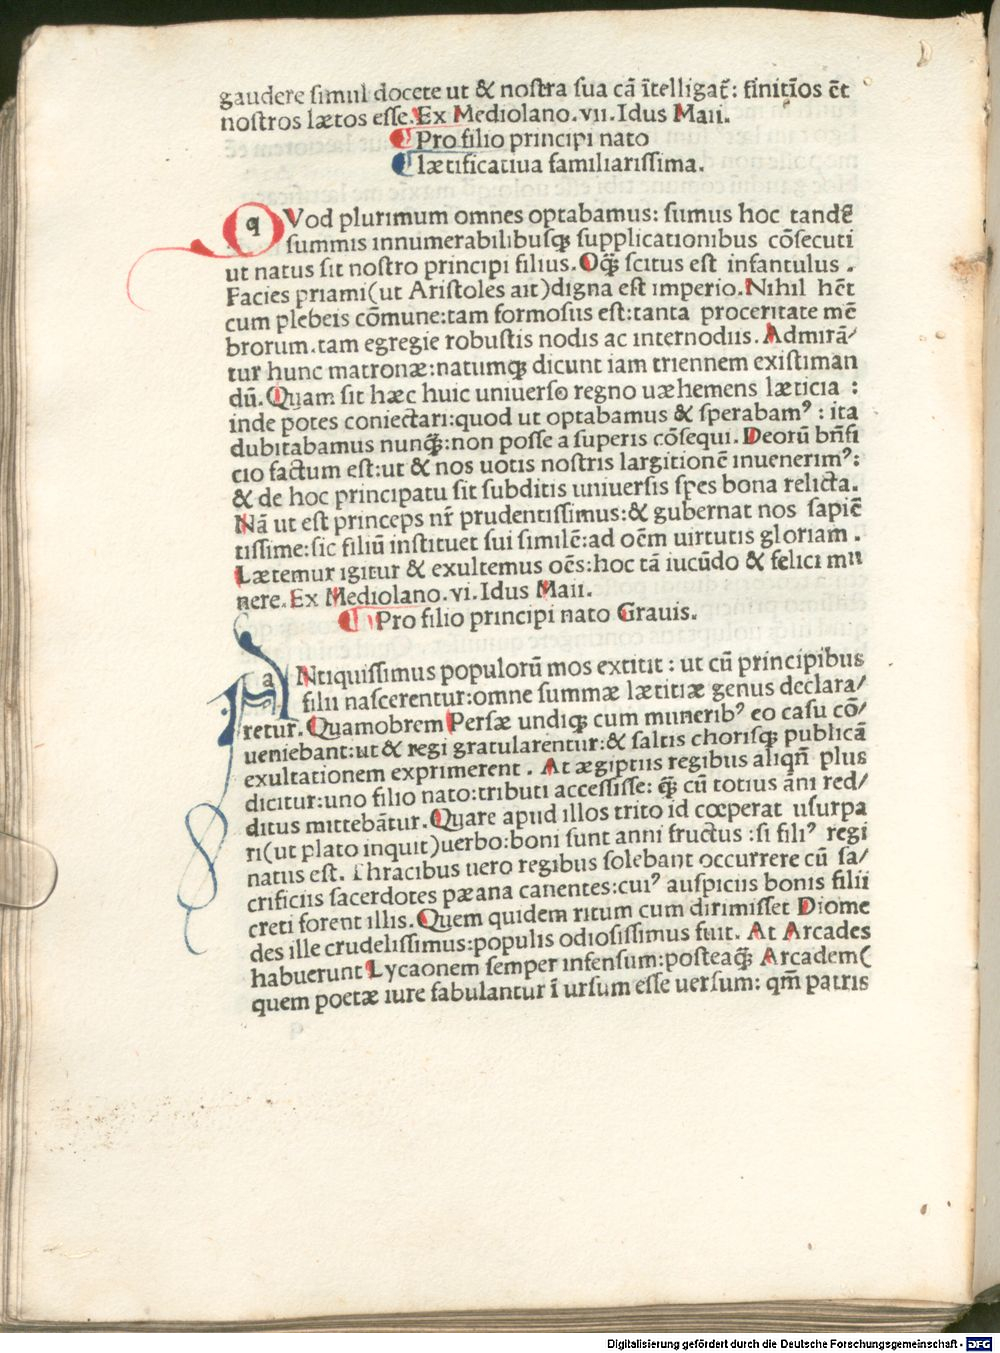 gaudere simul docete ut & nostra sua cā ītelligat̄: finitīos ēt
nostros lætos esse. Ex Mediolano. vii. Idus Maii.
Pro filio principi nato
lætificatiua familiarissima.
qVod plurimum omnes optabamus: sumus hoc tandē
summis innumerabilibusq; supplicationibus cōsecuti
ut natus sit nostro principi filius. Oq̄ scitus est infantulus.
Facies priami(ut Aristoles ait)digna est imperio. Nihil hēt
cum plebeis cōmune:tam formosus est:tanta proceritate mē
brorum.tam egregie robustis nodis ac internodiis. Admirā/
tur hunc matronæ:natumq; dicunt iam triennem existiman
dū. Quam sit hæc huic uniuerso regno uæhemens læticia :
inde potes coniectari:quod ut optabamus & sperabamꝰ : ita
dubitabamus nunq̄:non posse a superis cōsequi. Deorū bn̄fi
cio factum est:ut & nos uotis nostris largitionē inuenerimꝰ:
& de hoc principatu sit subditis uniuersis spes bona relicta.
Nā ut est princeps nr̄ prudentissimus:& gubernat nos sapiē
tissime:sic filiū instituet sui similē:ad oēm uirtutis gloriam .
Lætemur igitur & exultemus oēs:hoc tā iucūdo & felici mu
nere. Ex Mediolano. vi. Idus Maii.
Pro filio principi nato Grauis.
aNtiquissimus populorū mos extitit : ut cū principibus
filii nascerentur:omne summæ lætitiæ genus declara/
retur. Quamobrem Persæ undiq; cum muneribꝰ eo casu cō/
ueniebant:ut & regi gratularentur:& saltis chorisq; publicā
exultationem exprimerent . At ægiptiis regibus aliqn̄ plus
dicitur:uno filio nato:tributi accessisse: q̄ cū totius āni red/
ditus mittebātur. Quare apud illos trito id cœperat usurpa
ri(ut plato inquit)uerbo:boni sunt anni fructus :si filiꝰ regi
natus est. Thracibus uero regibus solebant occurrere cū sa/
crificiis sacerdotes pæana canentes:cuiꝰ auspiciis bonis filii
creti forent illis. Quem quidem ritum cum dirimisset Diome
des ille crudelissimus:populis odiosissimus fuit. At Arcades
habuerunt Lycaonem semper infensum:posteaq̄ Arcadem(
quem poetæ iure fabulantur ī ursum esse uersum: qm̄ patris
Digitalisierung gefördert durch die Deutsche Forschungsgemeinschaft - DFG